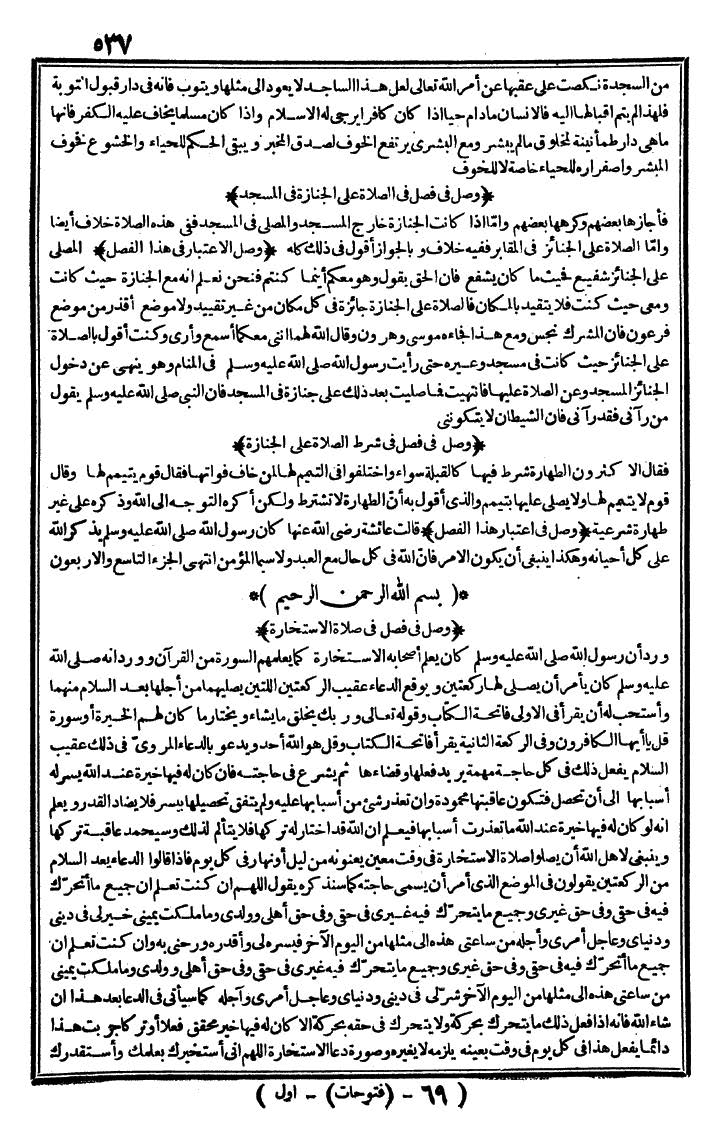 ٥٣٧
من السجدة نكصت على عقبها عن أمر الله تعالى لعل هذا الساجد لا يعود الى مثلها ويتوب فانه فى دار قبول التوبة
فلهذا لم يتم اقبالها اليه فالانسان مادام حيا اذا كان كافرا يرجى له الاسلام واذا كان مسلما يخاف عليه الكفر فانها
ماهى دار طمأنينة لمخلوق مالم يبشر ومع البشرى يرتفع الخوف لصدق المخبر ويبقى الحكم للحياء والخشوع فخوف
المبشر واصفراره للحياء خاصة لا للخوف
﴿وصل فى فصل فى الصلاة على الجنازة فى المسجد﴾
فأجازها بعضهم وكرهها بعضهم وامّا اذا كانت الجنازة خارج المسجد والمصلى فى المسجد ففى هذه الصلاة خلاف أيضا
وامّا الصلاة على الجنائز فى المقابر ففيه خلاف وبالجواز أقول فى ذلك كله ﴿وصل الاعتبار فى هذا الفصل﴾ المصلى
على الجنائز شفيع فحيث ما كان يشفع فان الحق يقول وهو معكم أينما كنتم فنحن نعلم انه مع الجنازة حيث كانت
ومعى حيث كنت فلا يتقيد بالمكان فالصلاة على الجنازة جائزة فى كل مكان من غير تقييد ولا موضع أقذر من موضع
فرعون فان المشرك نجس ومع هذا جاءه موسى وهرون وقال الله لهما اننى معكما أسمع وأرى وكنت أقول بالصلاة
على الجنائز حيث كانت فى مسجد وغيره حتى رأيت رسول الله صلى الله عليه وسلم فى المنام وهو ينهى عن دخول
الجنائز المسجد وعن الصلاة عليها فانتهيت فما صليت بعد ذلك على جنازة فى المسجد فان النبى صلى الله عليه وسلم يقول
من رآنى فقد رآنى فان الشيطان لا يتكوننى
﴿وصل فى فصل فى شرط الصلاة على الجنازة﴾
فقال الاكثرون الطهارة شرط فيها كالقبلة سواء واختلفوا فى التيمم لها لمن خاف فواتها فقال قوم يتيمم لها وقال
قوم لا يتيمم لها ولا يصلى عليها بتيمم والذى أقول به أنّ الطهارة لا تشترط ولكن أكره التوجه الى الله وذكره على غير
طهارة شرعية ﴿وصل فى اعتبار هذا الفصل﴾ قالت عائشة رضى الله عنها كان رسول الله صلى الله عليه وسلم يذكر الله
على كل أحيانه وهكذا ينبغى أن يكون الامر فانّ الله فى كل حال مع العبد ولا سيما المؤمن انتهى الجزء التاسع والاربعون
*( بسم الله الرحمن الرحيم )*
﴿وصل فى فصل فى صلاة الاستخارة﴾
ورد أن رسول الله صلى الله عليه وسلم كان يعلم أصحابه الاستخارة كما يعلمهم السورة من القرآن وورد انه صلى الله
عليه وسلم كان يأمر أن يصلى لها ركعتين ويوقع الدعاء عقيب الركعتين اللتين يصليهما من أجلها بعد السلام منهما
وأستحب له أن يقرأ فى الاولى فاتحة الكتاب وقوله تعالى وربك يخلق ما يشاء ويختار ما كان لهم الخيرة أو سورة
قل يا أيها الكافرون وفى الركعة الثانية يقرأ فاتحة الكتاب وقل هو الله أحد ويدعو بالدعاء المروىّ فى ذلك عقيب
السلام يفعل ذلك فى كل حاجة مهمة يريد فعلها وقضاءها ثم يشرع فى حاجته فان كان له فيها خيرة عند الله يسر له
أسبابها الى أن تحصل فتكون عاقبتها محمودة وان تعذر شئ من أسبابها عليه ولم يتفق تحصيلها بيسر فلا يضاد القدر ويعلم
انه لو كان له فيها خيرة عند الله ما تعذرت أسبابها فيعلم ان الله قد اختار له تركها فلا يتألم لذلك وسيحمد عاقبة تركها
وينبغى لاهل الله أن يصلوا صلاة الاستخارة فى وقت معين يعنونه من ليل أو نهار فى كل يوم فاذا قالوا الدعاء بعد السلام
من الركعتين يقولون فى الموضع الذى أمر أن يسمى حاجته كما سنذكره يقول اللهم ان كنت تعلم ان جميع ما أتحرّك
فيه فى حقى وفى حق غيرى وجميع ما يتحرّك فيه غيرى فى حقى وفى حق أهلى وولدى وما ملكت يمينى خير لى فى دينى
ودنياى وعاجل أمرى وأجله من ساعتى هذه الى مثلها من اليوم الآخر فيسره لى وأقدره ورضنى به وان كنت تعلم ان
جميع ما أتحرّك فيه فى حقى وفى حق غيرى وجميع ما يتحرّك فيه غيرى فى حقى وفى حق أهلى وولدى وما ملكت يمينى
من ساعتى هذه الى مثلها من اليوم الآخر شرّ لى فى دينى ودنياى وعاجل أمرى وآجله كما سيأتى فى الدعا بعد هذا ان
شاء الله فانه اذا فعل ذلك ما يتحرك بحركة ولا يتحرك فى حقه بحركة الا كان له فيها خير محقق فعلا أو تركا جربت هذا
دائما يفعل هذا فى كل يوم فى وقت بعينه يلزمه لا يغيره وصورة دعاء الاستخارة اللهم انى أستخيرك بعلمك وأستقدرك
( ٦٩ - (فتوحات) - اول )